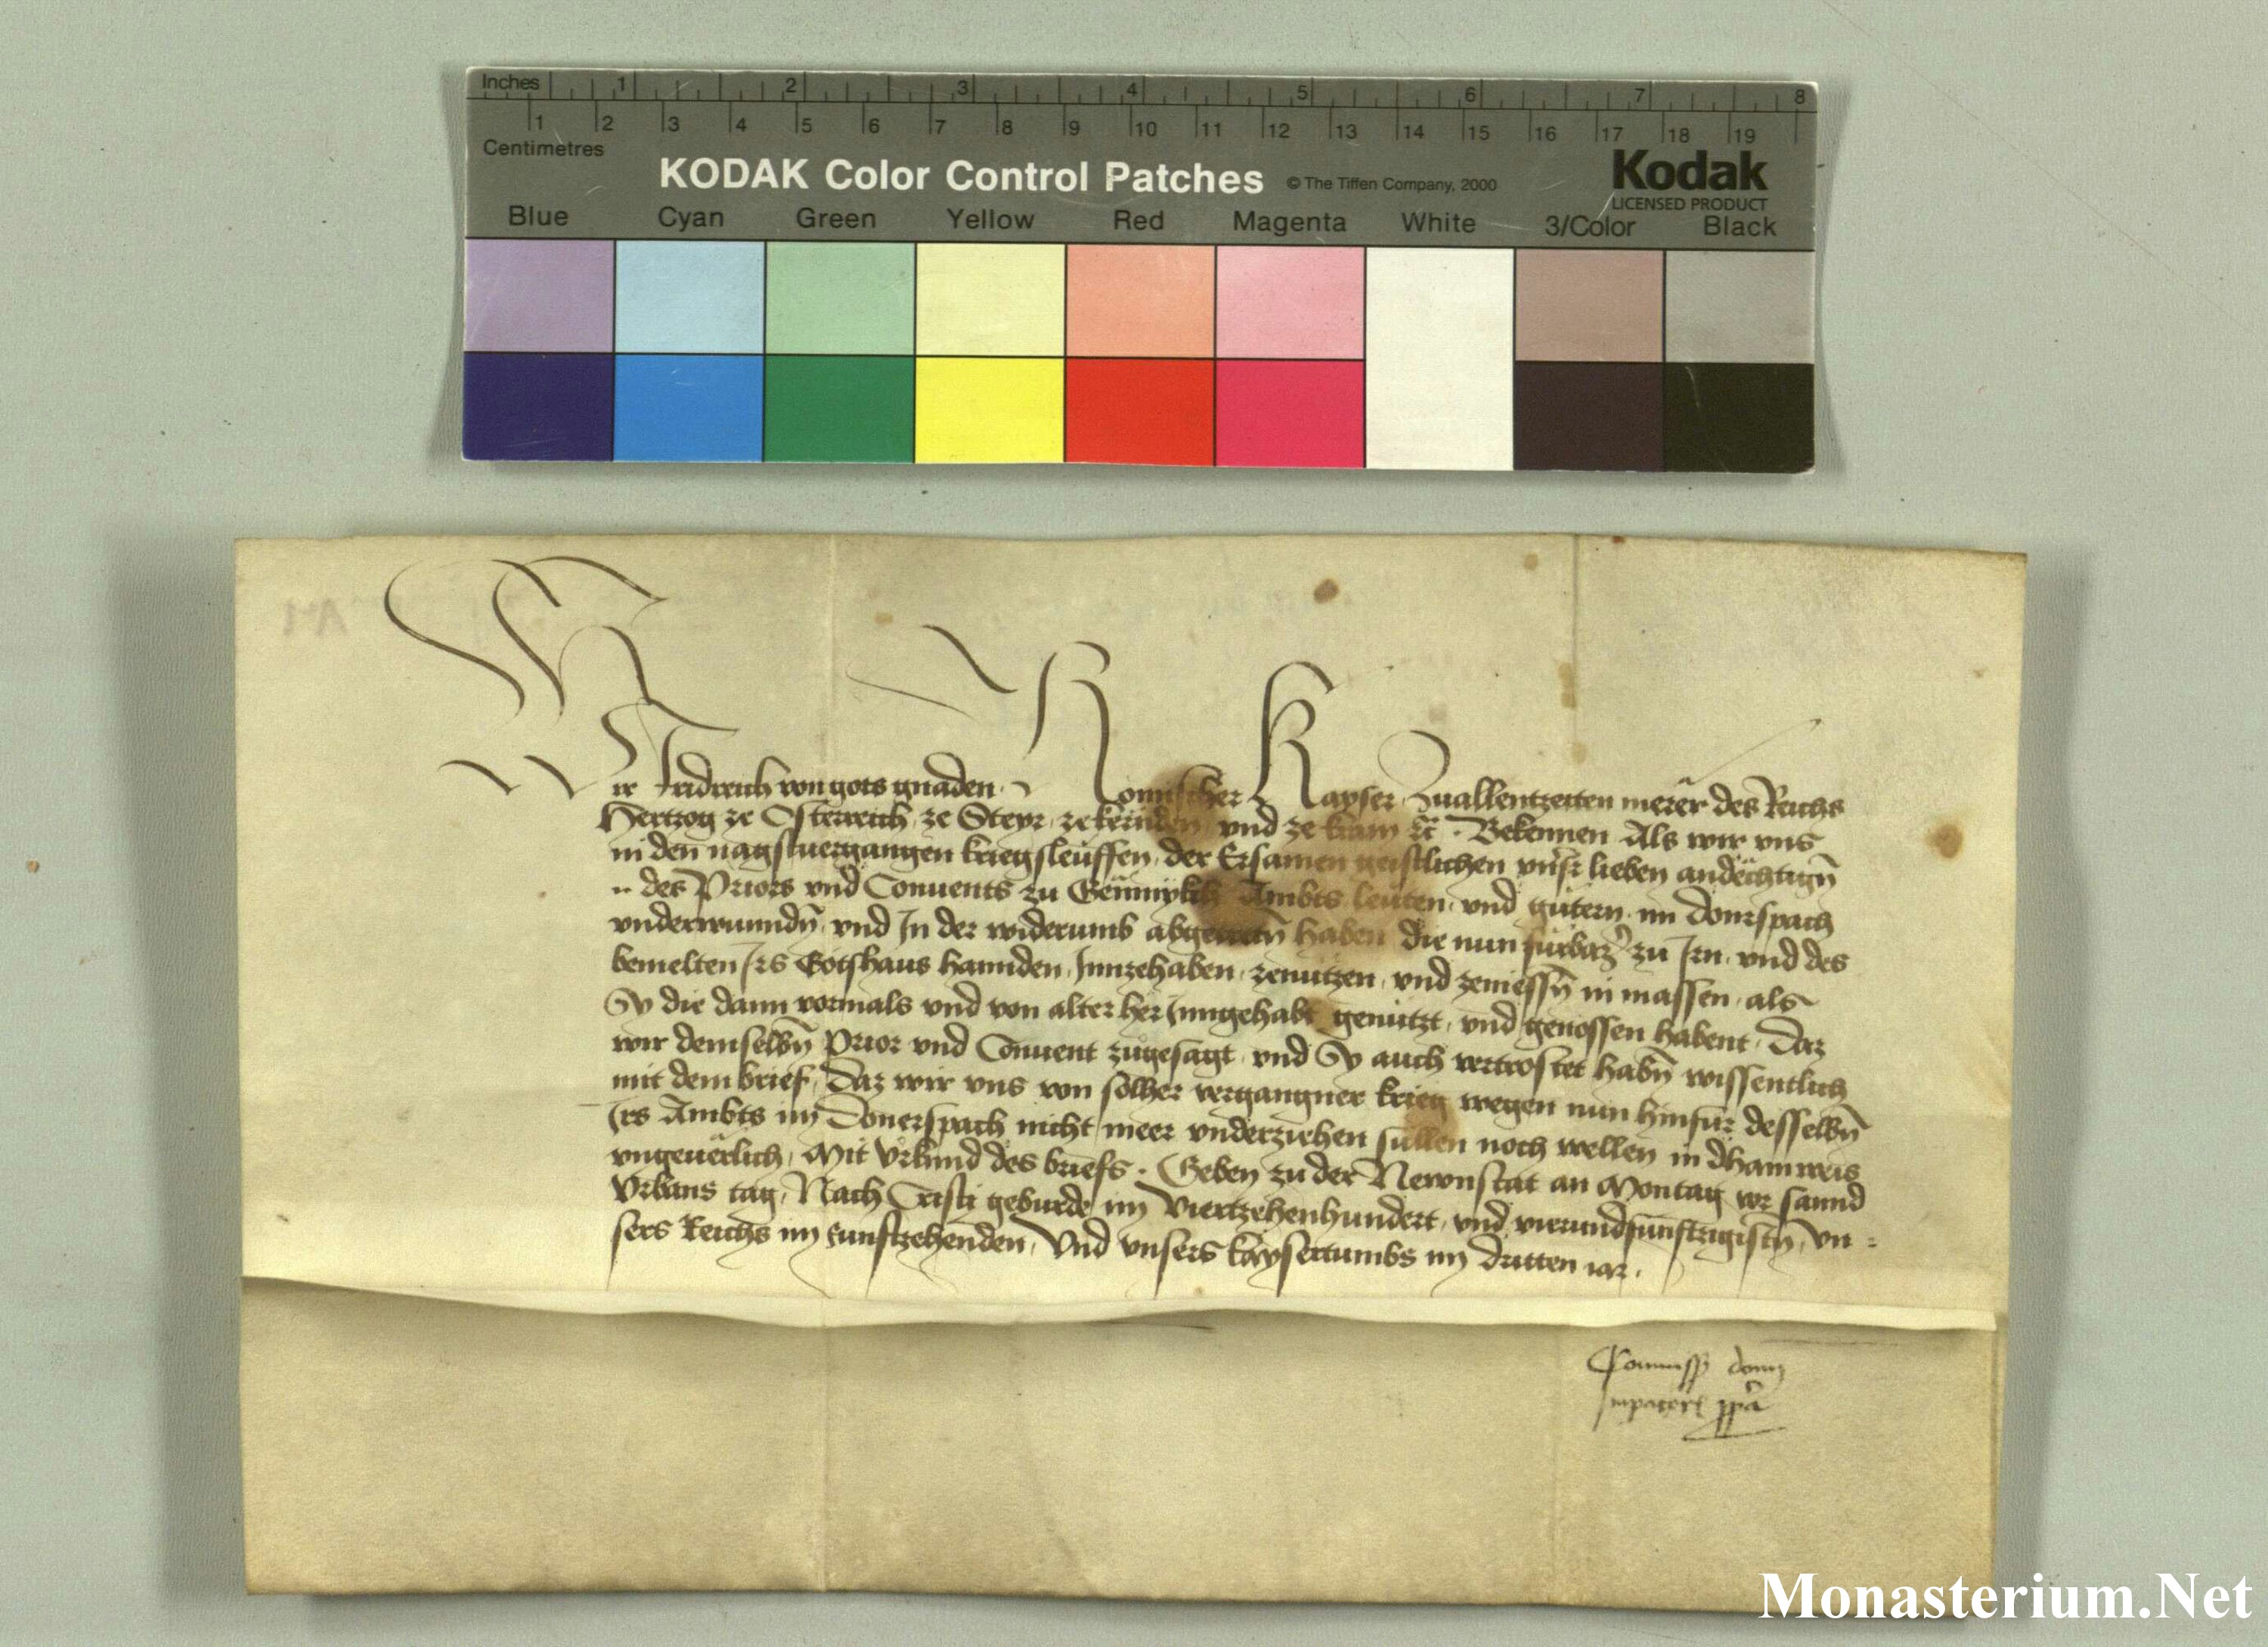 Inches 1 2 3 4 5 6 7 8
1 2 3 4 5 6 7 8 9 10 11 12 13 14 15 16 17 18 19
Centimetres
KODAK Color Control Patches © The Tiffen Company, 2000 Kodak
LICENSED PRODUCT
Blue Cyan Green Yellow Red Magenta White 3/Color Black
Wir Fridreich von gots gnaden Romischer Kayser Zuallentzeiten merer des Reichs
Hertzog ze Osterreich ze Steyr ze kernden vnd ze krain etc. Bekennen Als wir vns
in den nagstuergangen kriegsleuffen der Ersamen geistlichen vnsr lieben andechtign
.. des Priors vnd Conuents zu Ambts leuten vnd gutern im Donrspach
vnderwunndn vnd In der widerumb abgetretn haben die nun furbaz zu Irn vnd des
bemelten Irs Gotshaus hannden Innzehaben zenutzen vnd zeniessn in massen als
Sy die dann vormals vnd von alter her Inngehabt genutzt vnd genossen habent Daz
wir demselbn Prior vnd Conuent zugesagt vnd Sy auch vertrostet habn wissentlich
mit dem brief Daz wir vns von solher vergangner krieg wegen nun hinfur desselbn
Irs Ambts im Donerspach nicht meer vnderziehen sullen noch wellen in dhainweis
vngeuerlich Mit Vrkund des briefs. Geben zu der Newnstat an Montag vor sannd
Vrbans tag Nach Cristi geburde im Viertzehenhundert vnd vierundfunftzigistn vn=
sers Reichs im funftzehenden Vnd vnsers kaysertumbs im dritten iar.
Commissio domini
Imperatoris ppa
Monasterium.Net